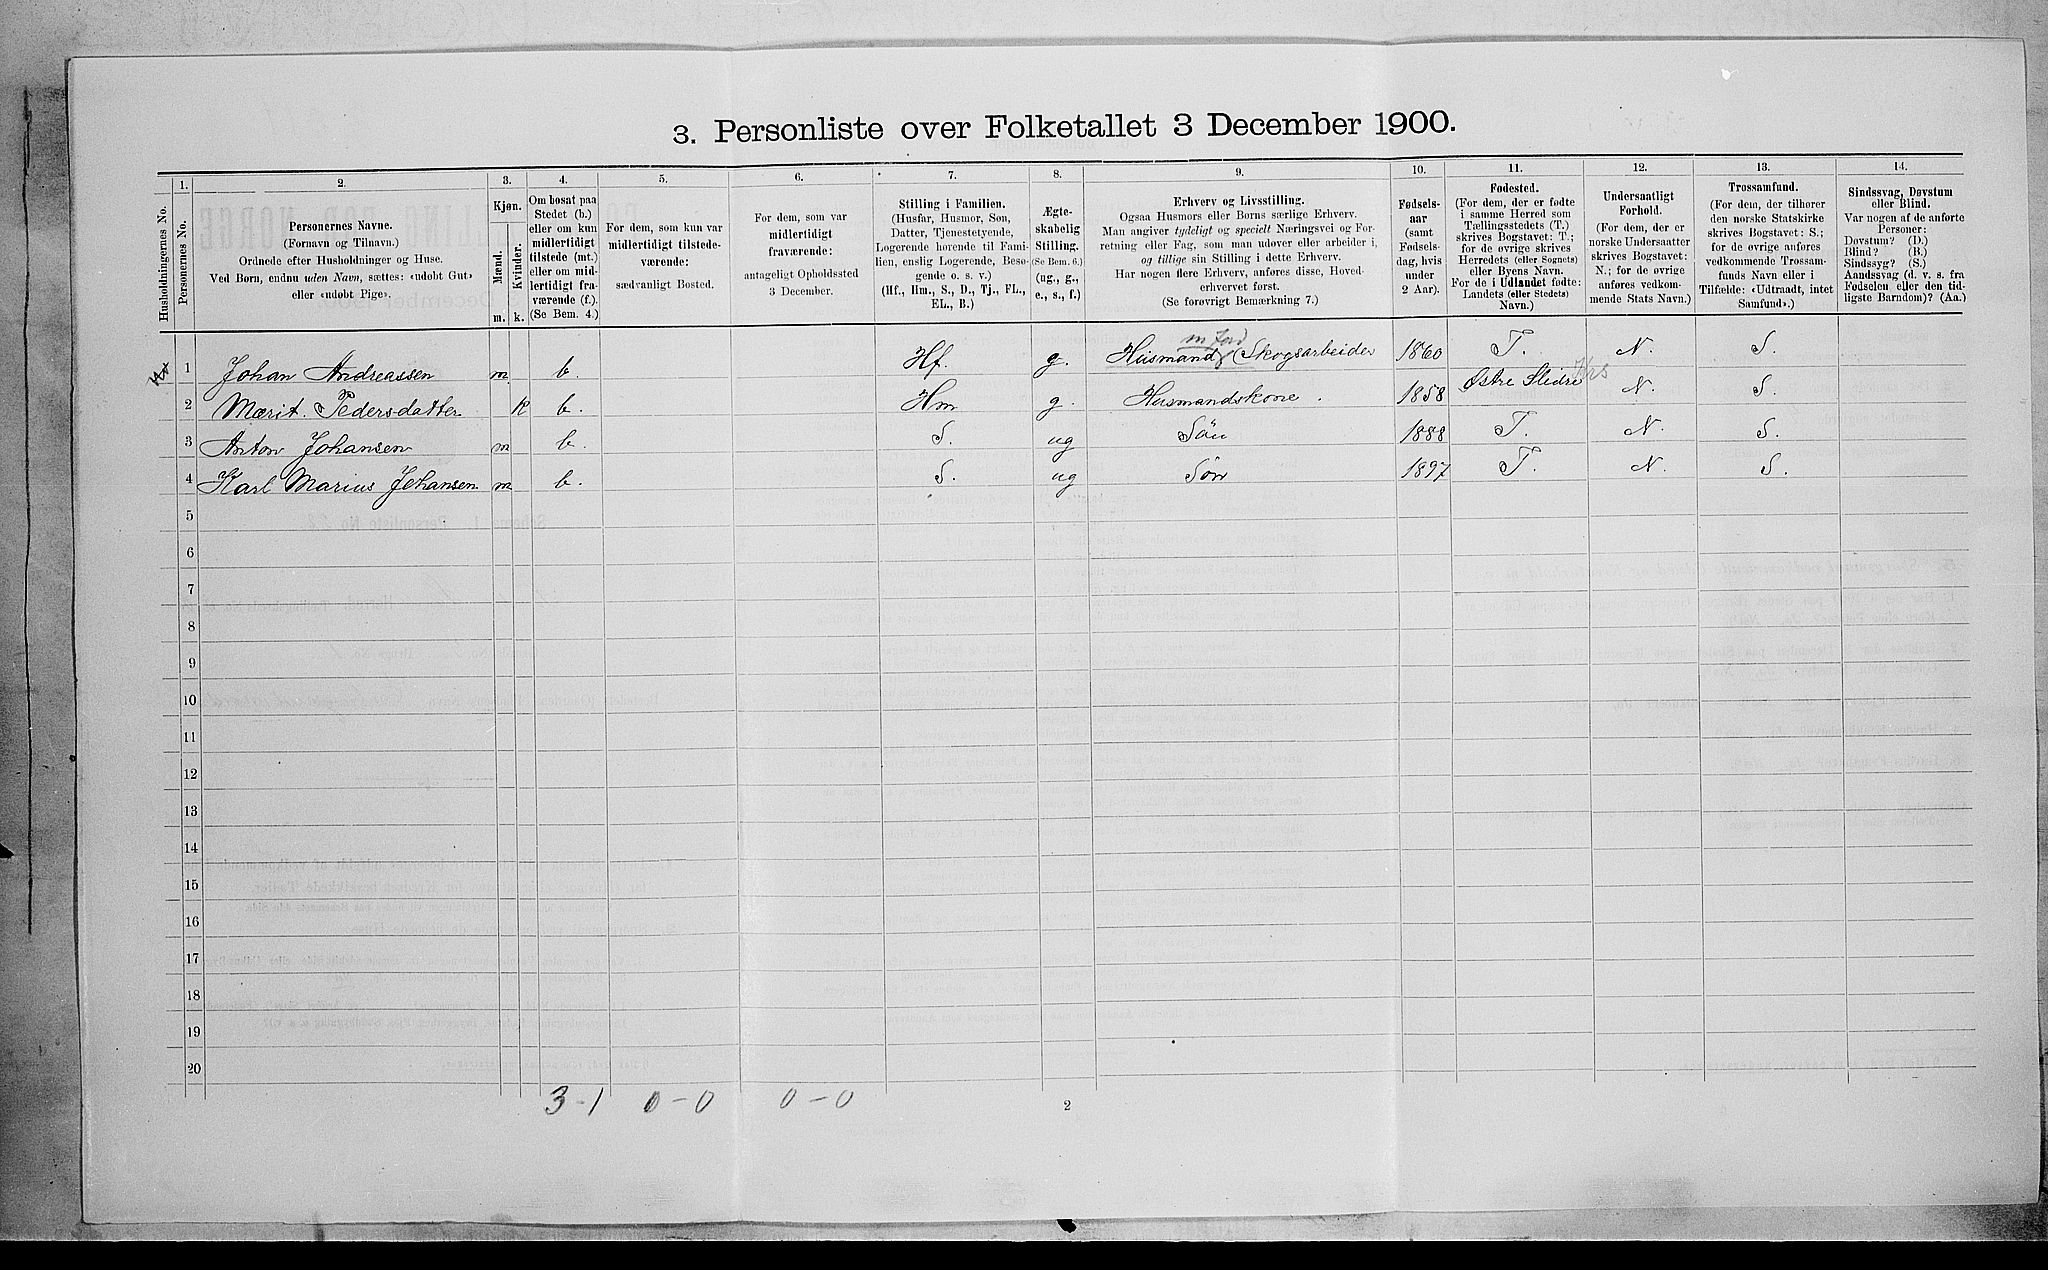 3. Personliste over Folketallet 3 December 1900.
Husholdningernes No.
1.
Personernes No.
2.
Personernes Navne.
(Fornavn og Tilnavn.)
Ordnede efter Husholdninger og Huse.
Ved Børn, endnu uden Navn, sættes: «udøbt Gut»
eller «udøbt Pige».
3.
Kjøn.
Mænd.
Kvinder.
m. k.
4.
Om bosat paa
Stedet (b.)
eller om kun
midlertidigt
tilstede (mt.)
eller om mid-
lertidigt fra-
værende (f.).
(Se Bem. 4.)
5.
For dem, som kun var
midlertidigt tilstede-
værende:
sædvanligt Bosted.
6.
For dem, som var
midlertidigt
fraværende:
antageligt Opholdssted
3 December.
7.
Stilling i Familien.
(Husfar, Husmor, Søn,
Datter, Tjenestetyende,
Logerende hørende til Fami-
lien, enslig Logerende, Besø-
gende o. s. v.)
(Hf., Hm., S., D., Tj., FL.,
EL., B.)
8.
Ægte-
skabelig
Stilling.
(Se Bem. 6.)
(ug., g.,
e., s., f.)
9.
Erhverv og Livsstilling.
Ogsaa Husmors eller Børns særlige Erhverv.
Man angiver tydeligt og specielt Næringsvei og For-
retning eller Fag, som man udøver eller arbeider i,
og tillige sin Stilling i dette Erhverv.
Har nogen flere Erhverv, anføres disse, Hoved-
erhvervet først.
(Se forøvrigt Bemærkning 7.)
10.
Fødsels-
aar
(samt
Fødsels-
dag, hvis
under
2 Aar).
11.
Fødested.
(For dem, der er fødte
i samme Herred som
Tællingsstedets (T.)
skrives Bogstavet: T.;
for de øvrige skrives
Herredets (eller Sognets)
eller Byens Navn.
For de i Udlandet fødte:
Landets (eller Stedets)
Navn.)
12.
Undersaatligt
Forhold.
(For dem, der er
norske Undersaatter
skrives Bogstavet:
N.; for de øvrige
anføres vedkom-
mende Stats Navn.)
13.
Trossamfund.
(For dem, der tilhører
den norske Statskirke
skrives Bogstavet: S.;
for de øvrige anføres
vedkommende Trossam-
funds Navn eller i
Tilfælde: «Udtraadt, intet
Samfund».)
14.
Sindssvag, Døvstum
eller Blind.
Var nogen af de anførte
Personer:
Døvstum? (D.)
Blind? (B.)
Sindssyg? (S.)
Aandssvag (d. v. s. fra
Fødselen eller den tid-
ligste Barndom)? (Aa.)
m jord
1 Johan Andreassen m b. Hf. g. Husmand (Skogsarbeider 1860 T. N. S.
2 Marit Pedersdatter k b. Hm g. Husmandskone. 1858 Østre Slidre N. S.
3 Anton Johansen m b. S. ug Sön 1888 T. N. S.
4 Karl Marius Johansen m b. S. ug Sön 1897 T. N. S.
5
6
7
8
9
10
11
12
13
14
15
16
17
18
19
20
3-1 0-0 0-0
2